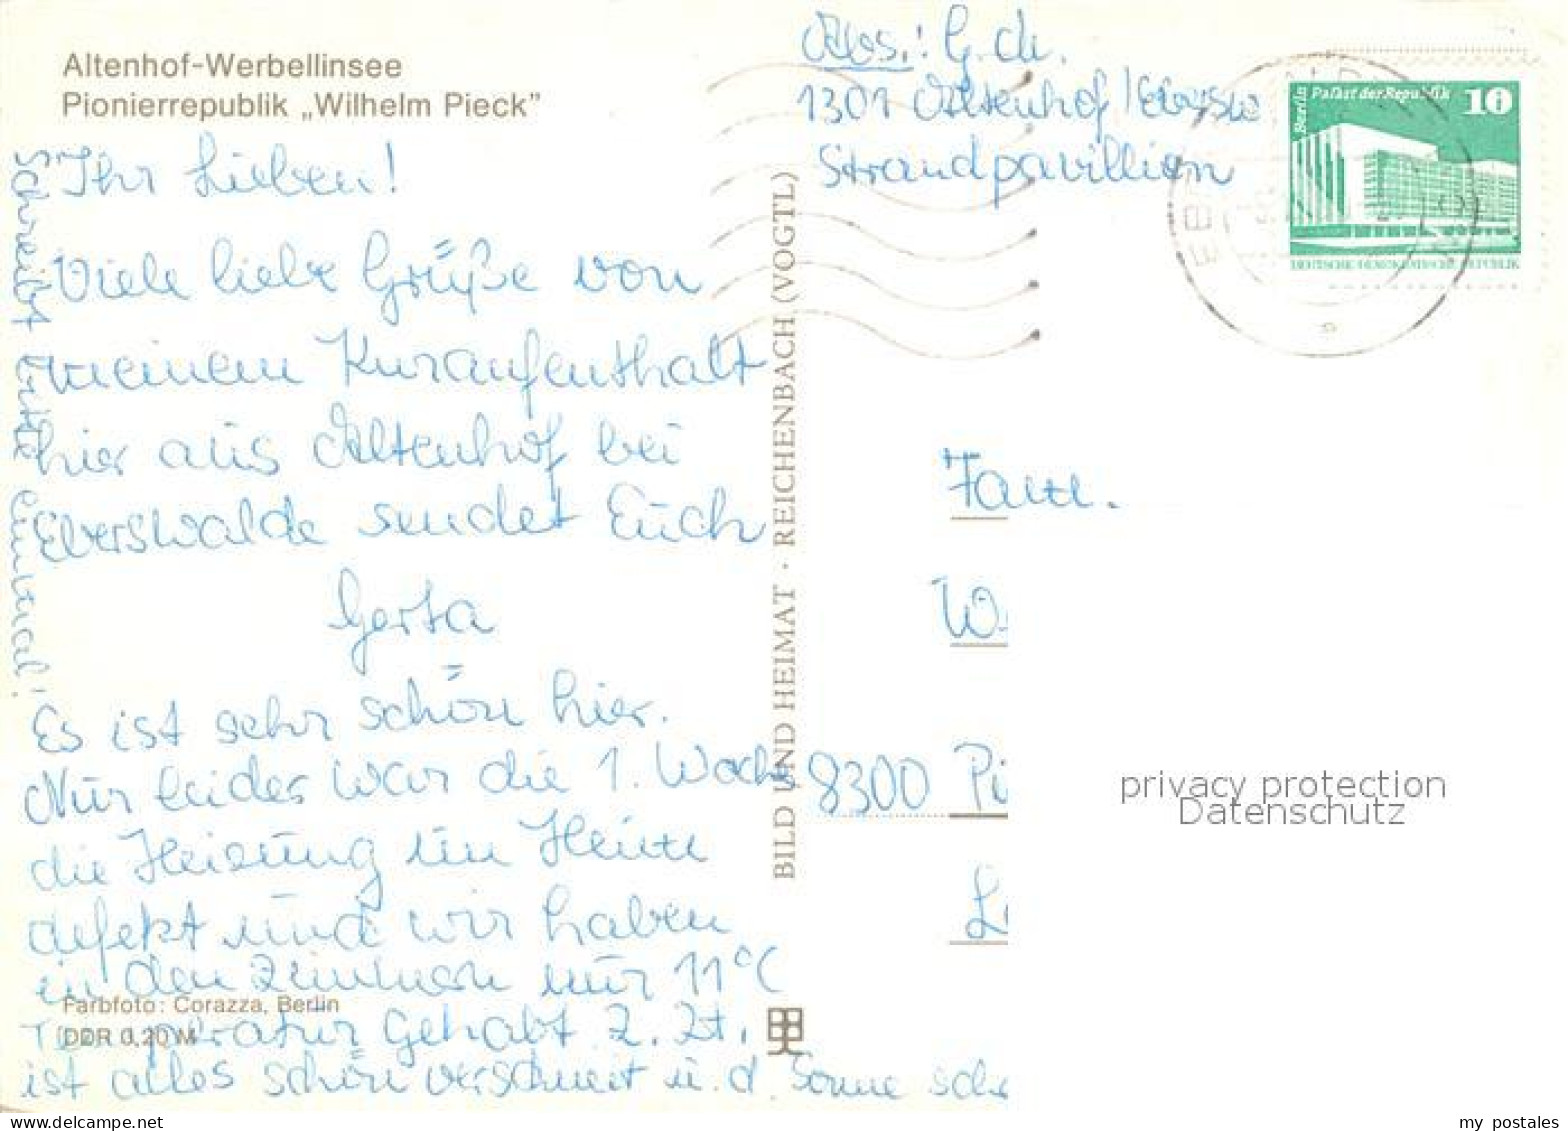 Altenhof-Werbellinsee
Pionierrepublik „Wilhelm Pieck”
Ihr Lieben!
Viele liebe Grüße von
meinem Kuraufenthalt
hier aus Altenhof bei
Eberswalde sendet Euch
Gerta
Es ist sehr schön hier.
Nur leider war die 1. Woche
die Heizung im Heim
defekt und wir haben
in den Zimmern nur 11°C
Temperatur gehabt z. Zt.
ist alles schön verschneit u. d. Sonne
Schreibt bitte einmal!
Farbfoto: Corazza, Berlin
DDR 0,20 M
BILD UND HEIMAT · REICHENBACH (VOGTL)
Abs.: G.
1301 Altenhof/Ebersw
Strandpavillion
Berlin Palast der Republik 10
DEUTSCHE DEMOKRATISCHE REPUBLIK
Fam.
W
8300 Pi
privacy protection
Datenschutz
my postales
www.delcampe.net